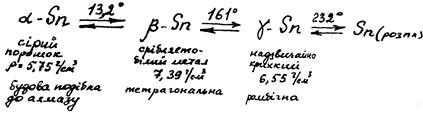 α-Sn 13,2° β-Sn 161° γ-Sn 232° Sn (розпл)
сірий порошок
ρ=5,75 г/см³
будова подібна до алмазу
сріблясто-білий метал
7,39 г/см³
тетрагональна
надзвичайно крихкий
6,55 г/см³
ромбічна